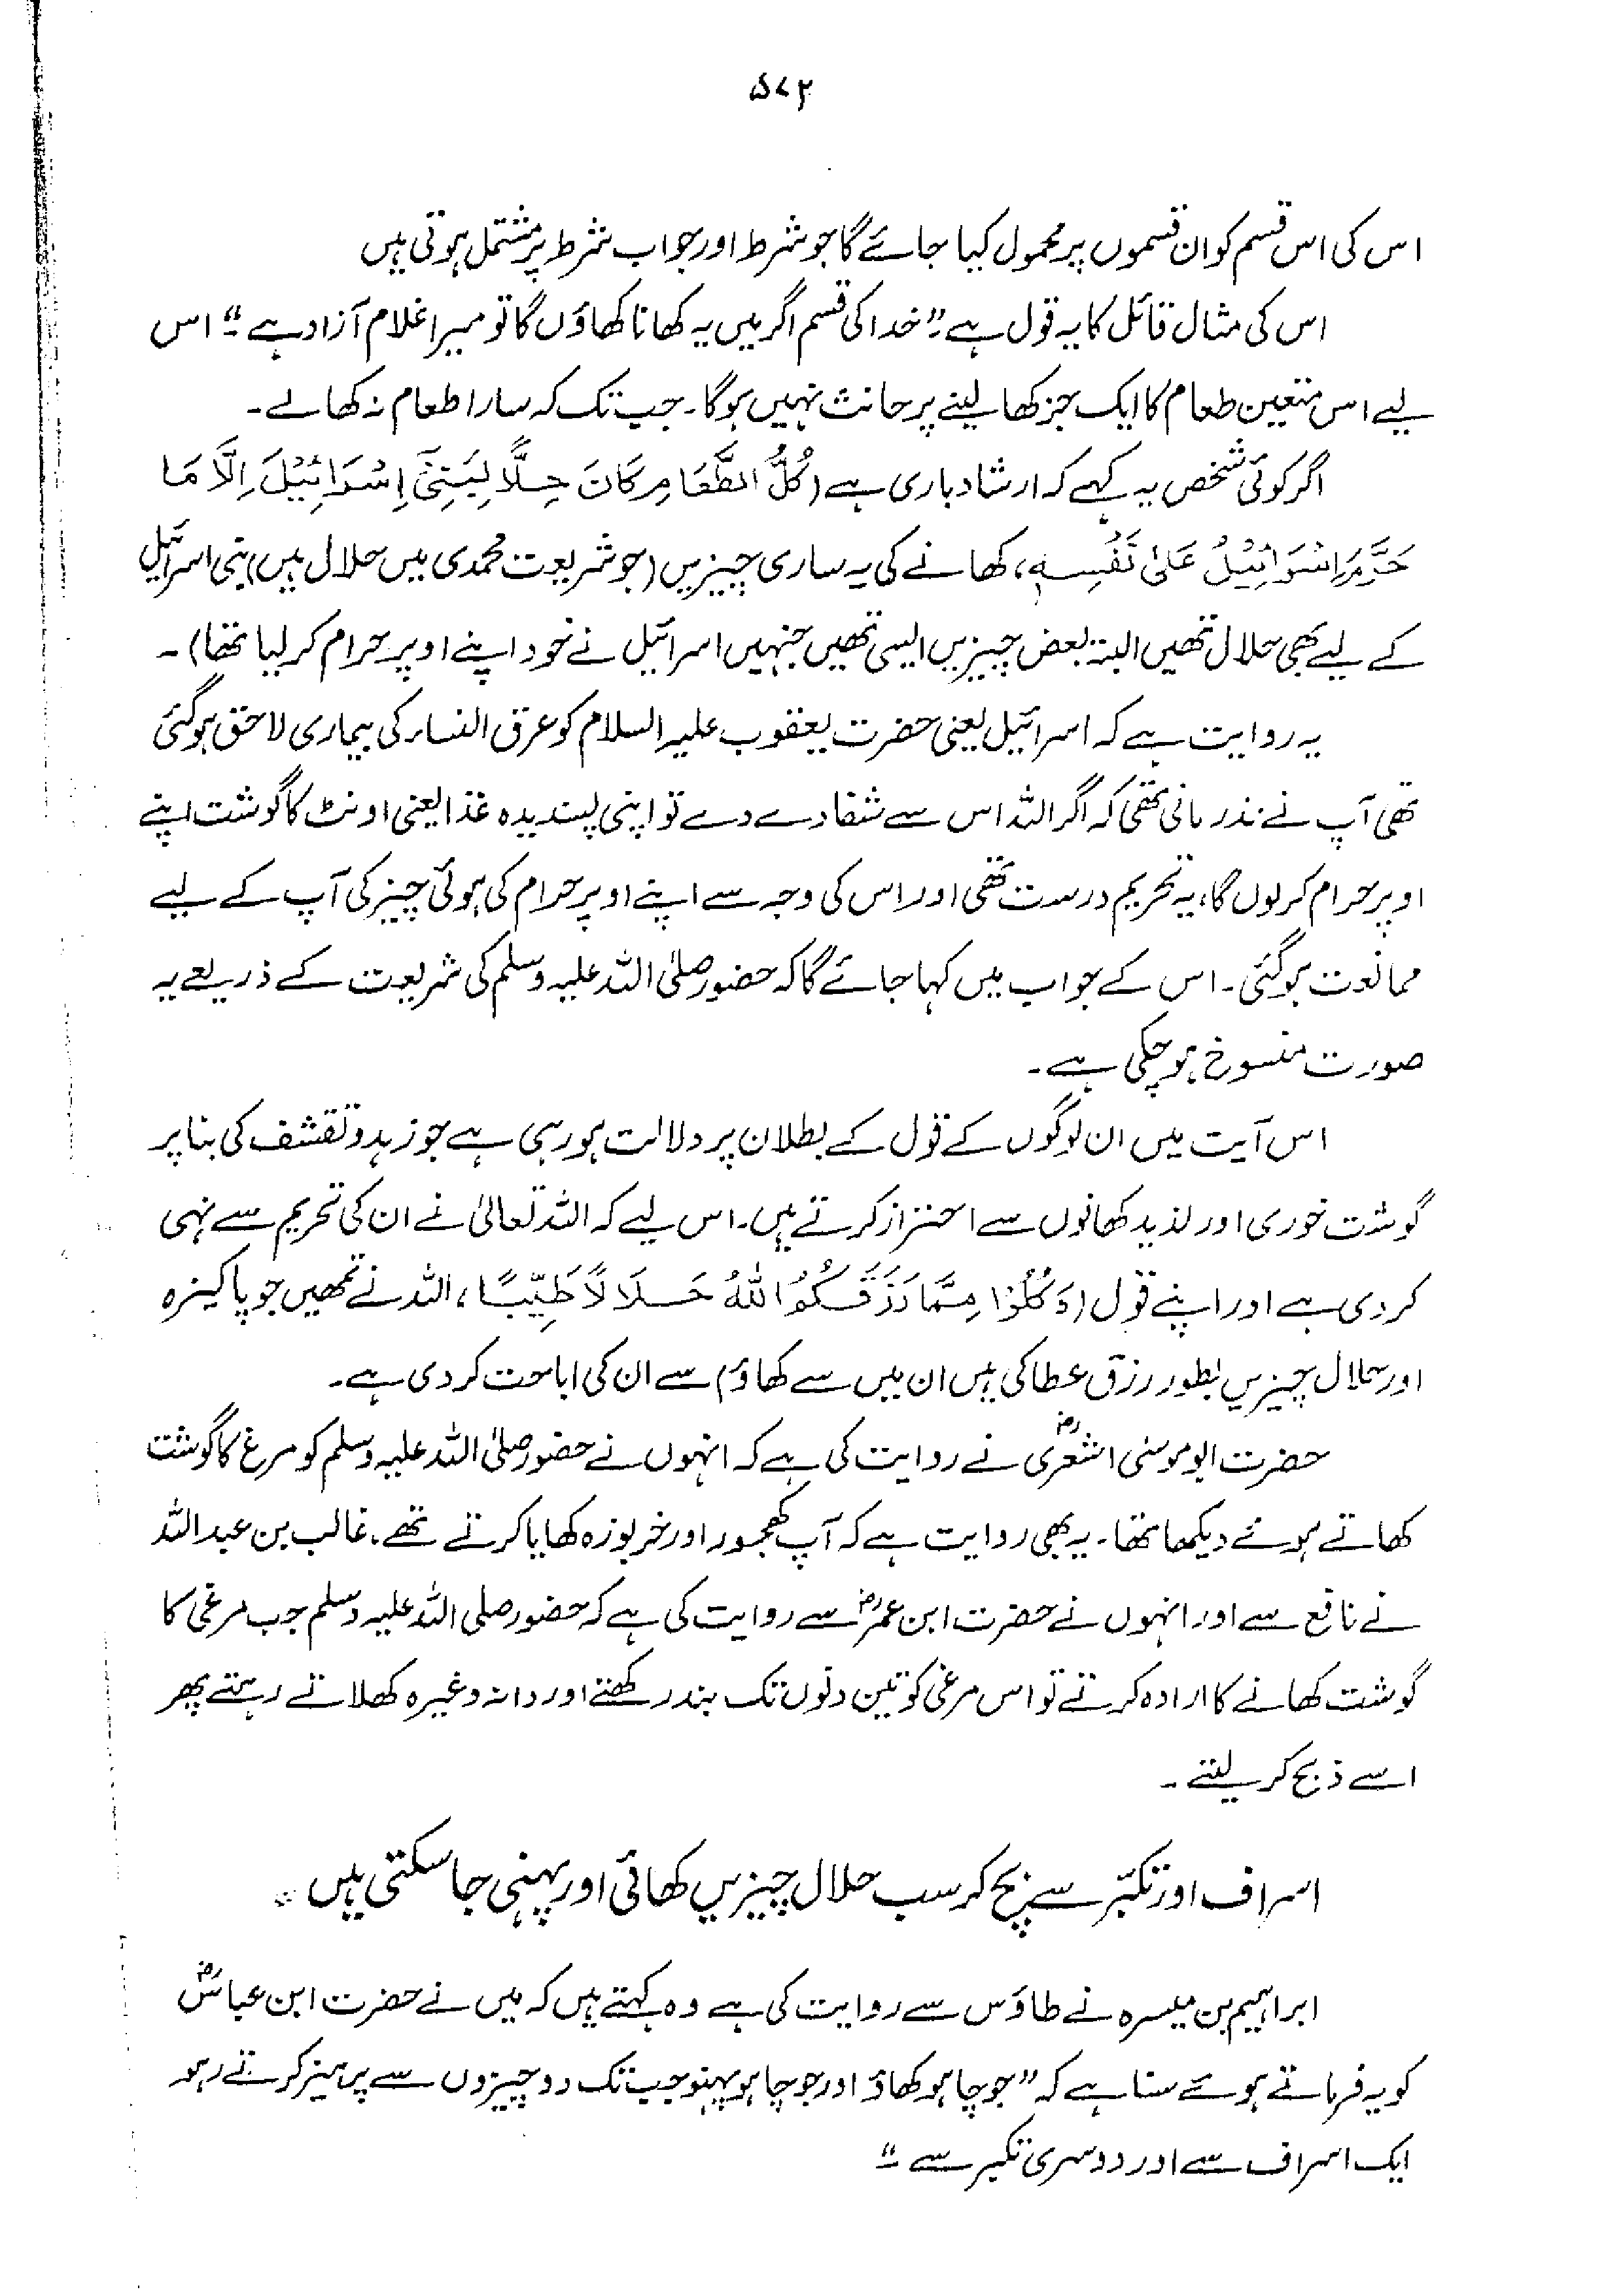 ۵۷۲
اس کی اس قسم کو ان قسموں پر محمول کیا جائے گا جو شرط اور جواب شرط پر مشتمل ہوتی ہیں
اس کی مثال قائل کا یہ قول ہے "خدا کی قسم اگر میں یہ کھانا کھاؤں گا تو میرا غلام آزاد ہے۔" اس
لیے اس متعین طعام کا ایک جز کھا لینے پر حانث نہیں ہوگا۔ جب تک کہ سارا طعام نہ کھالے۔
اگر کوئی شخص یہ کہے کہ ارشاد باری ہے (كُلُّ الطَّعَامِ كَانَ حِلًّا لِبَنِىْ إِسْرَائِيْلَ اِلَّا مَا
حَرَّمَ اِسْرَائِيْلُ عَلىٰ نَفْسِهِ، کھانے کی یہ ساری چیزیں (جو شریعت محمدی میں حلال ہیں) بنی اسرائیل
کے لیے بھی حلال تھیں البتہ بعض چیزیں ایسی تھیں جنہیں اسرائیل نے خود اپنے اوپر حرام کر لیا تھا)۔
یہ روایت ہے کہ اسرائیل یعنی حضرت یعقوب علیہ السلام کو عرق النساء کی بیماری لاحق ہوگئی
تھی آپ نے نذر مانی تھی کہ اگر اللہ اس سے شفا دے دے تو اپنی پسندیدہ غذا یعنی اونٹ کا گوشت اپنے
اوپر حرام کر لوں گا، یہ تحریم درست تھی اور اس کی وجہ سے اپنے اوپر حرام کی ہوئی چیز کی آپ کے لیے
ممانعت ہوگئی۔ اس کے جواب میں کہا جائے گا کہ حضور صلی اللہ علیہ وسلم کی شریعت کے ذریعے یہ
صورت منسوخ ہو چکی ہے۔
اس آیت میں ان لوگوں کے قول کے بطلان پر دلالت ہو رہی ہے جو زہد و تقشف کی بنا پر
گوشت خوری اور لذیذ کھانوں سے احتراز کرتے ہیں۔ اس لیے کہ اللہ تعالیٰ نے ان کی تحریم سے نہی
کر دی ہے اور اپنے قول (وَكُلُوْا مِمَّا رَزَقَكُمُ اللهُ حَلَالًا طَيِّبًا، اللہ نے تمھیں جو پاکیزہ
اور حلال چیزیں بطور رزق عطا کی ہیں ان میں سے کھاؤ) سے ان کی اباحت کر دی ہے۔
حضرت ابو موسٰی اشعریؓ نے روایت کی ہے کہ انہوں نے حضور صلی اللہ علیہ وسلم کو مرغ کا گوشت
کھاتے ہوئے دیکھا تھا۔ یہ بھی روایت ہے کہ آپ کھجور اور خربوزہ کھایا کرتے تھے۔ غالب بن عبداللہ
نے نافع سے اور انہوں نے حضرت ابن عمرؓ سے روایت کی ہے کہ حضور صلی اللہ علیہ وسلم جب مرغی کا
گوشت کھانے کا ارادہ کرتے تو اس مرغی کو تین دنوں تک بند رکھتے اور دانہ وغیرہ کھلاتے رہتے پھر
اسے ذبح کر لیتے۔
اسراف اور تکبّر سے بچ کر سب حلال چیزیں کھائی اور پہنی جا سکتی ہیں۔
ابراہیم بن میسرہ نے طاؤس سے روایت کی ہے وہ کہتے ہیں کہ میں نے حضرت ابن عباسؓ
کو یہ فرماتے ہوئے سنا ہے کہ "جو چاہو کھاؤ اور جو چاہو پہنو جب تک دو چیزوں سے پرہیز کرتے رہو
ایک اسراف سے اور دوسری تکبر سے۔"